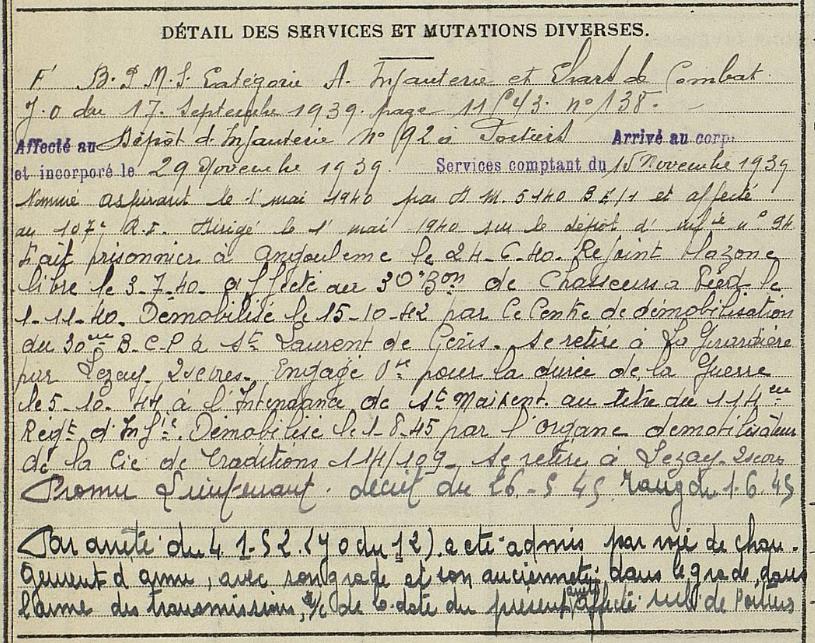 DÉTAIL DES SERVICES ET MUTATIONS DIVERSES.
B.P.M.S. Catégorie A. Infanterie et Chars de Combat.
J.O du 17. Septembre 1939. page 11543. n° 138. -
Affecté au Dépôt d'Infanterie N° 92 à Poitiers Arrivé au corps
et incorporé le 29 Novembre 1939. Services comptant du 15 Novembre 1939
Nommé aspirant le 1er mai 1940 par D.M. 5140 et affecté
au 107e R.I. Dirigé le 1er mai 1940 sur le dépôt d'infie n° 94
Fait prisonnier à Angoulème le 24-6-40. Rejoint la zone
libre le 3-7-40. affecté au 30e Bon de Chasseurs à Pied le
1-11-40. Démobilisé le 15-10-42 par le Centre de démobilisation
du 30ème B.C.P à St Laurent de Se retire à La
par Lezay. 2sevres. Engagé Vre pour la durée de la Guerre
le 5-10-44 à l'Intendance de St Maixent. au titre du 114eme
Regt d'Infie. Démobilisé le 1-8-45 par l'organe démobilisateur
de la Cie de Traditions 114/109 - se retire à Lezay. 2sevres
Promu Lieutenant. décret du 26-5 45 rang du 1.6.45
Par arrêté du 4.1.52. (J.O du 12) a été admis par voie de chan-
gement d'arme, avec son grade et son ancienneté dans le grade, dans
l'arme des transmissions, à/c de la date du présent arrêté affecté de Poitiers